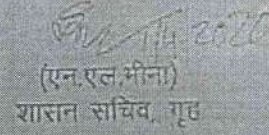 (एन.एल.मीना)
शासन सचिव, गृह